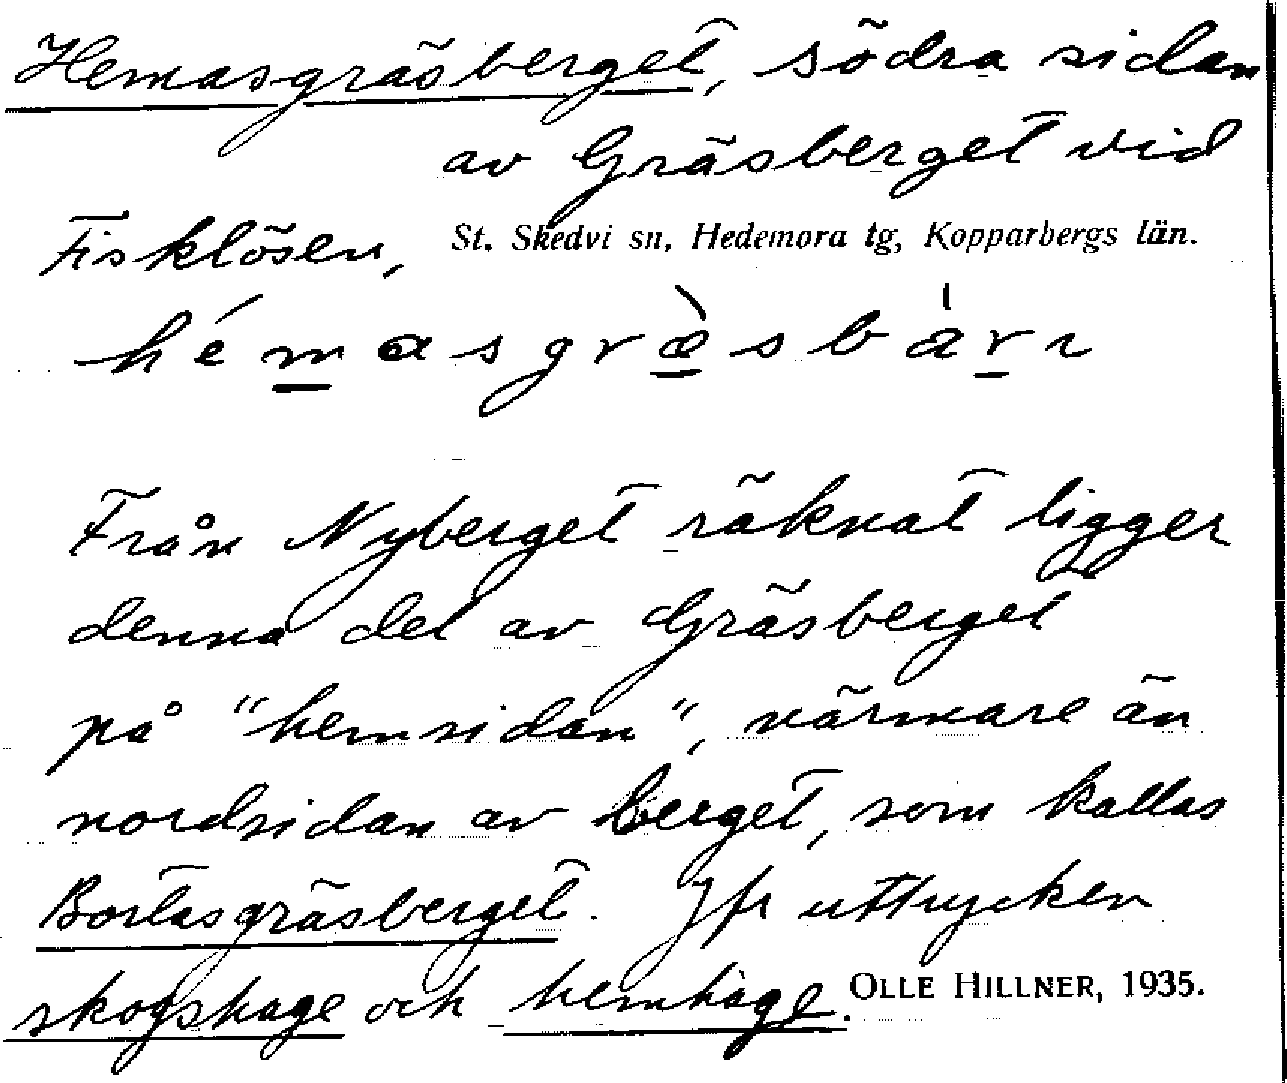 Hemasgräsberget, södra sidan
av Gräsberget vid
Fisklösen, St. Skedvi sn, Hedemora tg, Kopparbergs län.
hémasgræ̀sbàrı
Från Nyberget räknat ligger
denna del av Gräsberget
på "hemsidan", närmare än
nordsidan av berget, som kallas
Bortasgräsberget. Jfr uttrycken
skogshage och hemhage. OLLE HILLNER, 1935.